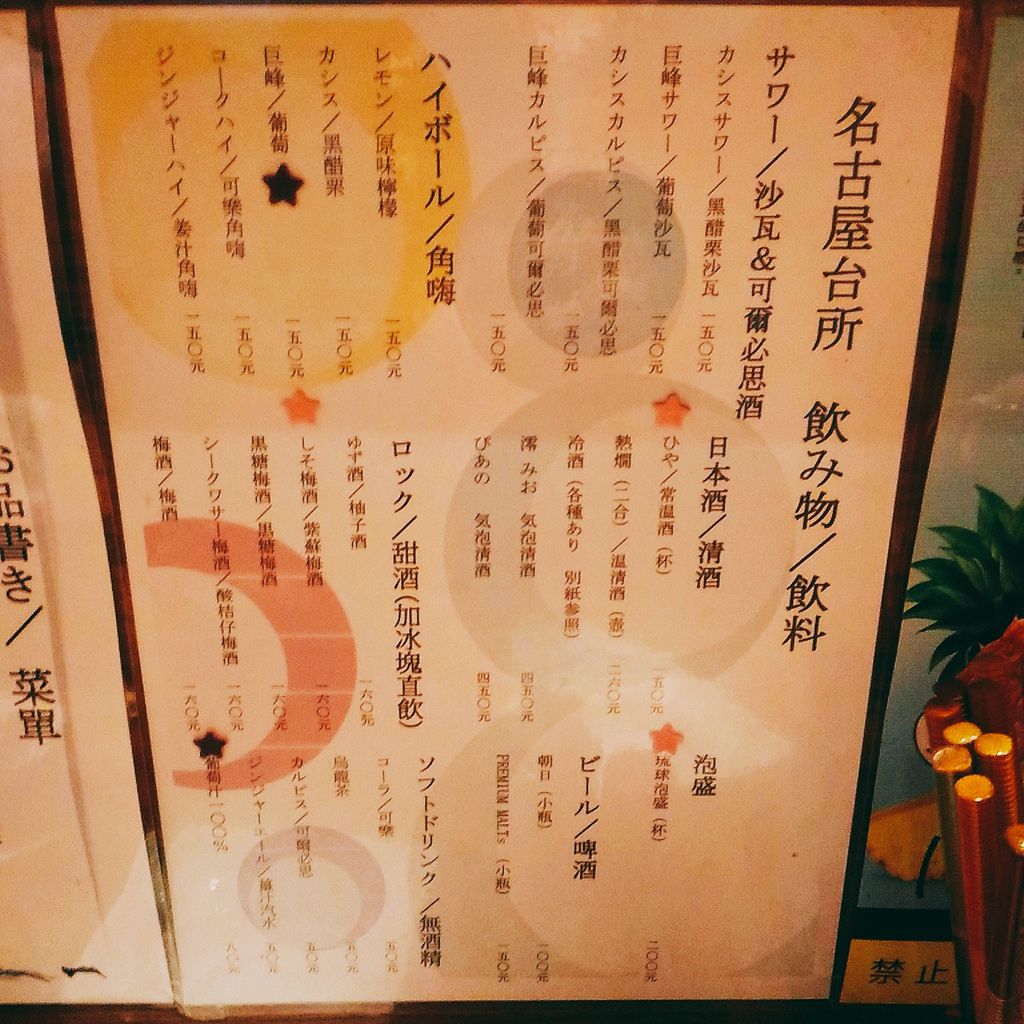 名古屋台所　飲み物／飲料
サワー／沙瓦＆可爾必思酒
カシスサワー／黑醋栗沙瓦　一五〇元
巨峰サワー／葡萄沙瓦　一五〇元
カシスカルピス／黑醋栗可爾必思　一五〇元
巨峰カルピス／葡萄可爾必思　一五〇元
ハイボール／角嗨
レモン／原味檸檬　一五〇元
カシス／黑醋栗　一五〇元
巨峰／葡萄　一五〇元
コークハイ／可樂角嗨　一五〇元
ジンジャーハイ／姜汁角嗨　一五〇元
日本酒／清酒
ひや／常温酒（杯）　一五〇元
熱燗（二合）／温清酒（壺）　二六〇元
冷酒（各種あり　別紙参照）
澪　みお　気泡清酒　四五〇元
ぴあの　気泡清酒　四五〇元
ロック／甜酒(加冰塊直飲)
ゆず酒／柚子酒　一六〇元
しそ梅酒／紫蘇梅酒　一六〇元
黒糖梅酒／黒糖梅酒　一六〇元
シークワサー梅酒／酸桔仔梅酒　一六〇元
梅酒／梅酒　一六〇元
泡盛
琉球泡盛（杯）　二〇〇元
ビール／啤酒
朝日（小瓶）　一〇〇元
PREMIUM MALTs（小瓶）　一五〇元
ソフトドリンク／無酒精
コーラ／可樂　五〇元
烏龍茶　五〇元
カルピス／可爾必思　五〇元
ジンジャーエール／薑汁汽水　五〇元
葡萄汁一〇〇％　八〇元
お品書き／　菜單
禁止